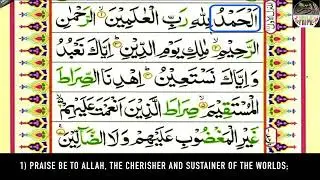 اَلْحَمْدُ لِلّٰهِ رَبِّ الْعٰلَمِيْنَ الرَّحْمٰنِ
الرَّحِيْمِ مٰلِكِ يَوْمِ الدِّيْنِ اِيَّاكَ نَعْبُدُ
وَ اِيَّاكَ نَسْتَعِيْنُ اِهْدِنَا الصِّرَاطَ
الْمُسْتَقِيْمَ صِرَاطَ الَّذِيْنَ اَنْعَمْتَ عَلَيْهِمْ
غَيْرِ الْمَغْضُوْبِ عَلَيْهِمْ وَلَا الضَّآلِّيْنَ
1) PRAISE BE TO ALLAH, THE CHERISHER AND SUSTAINER OF THE WORLDS;